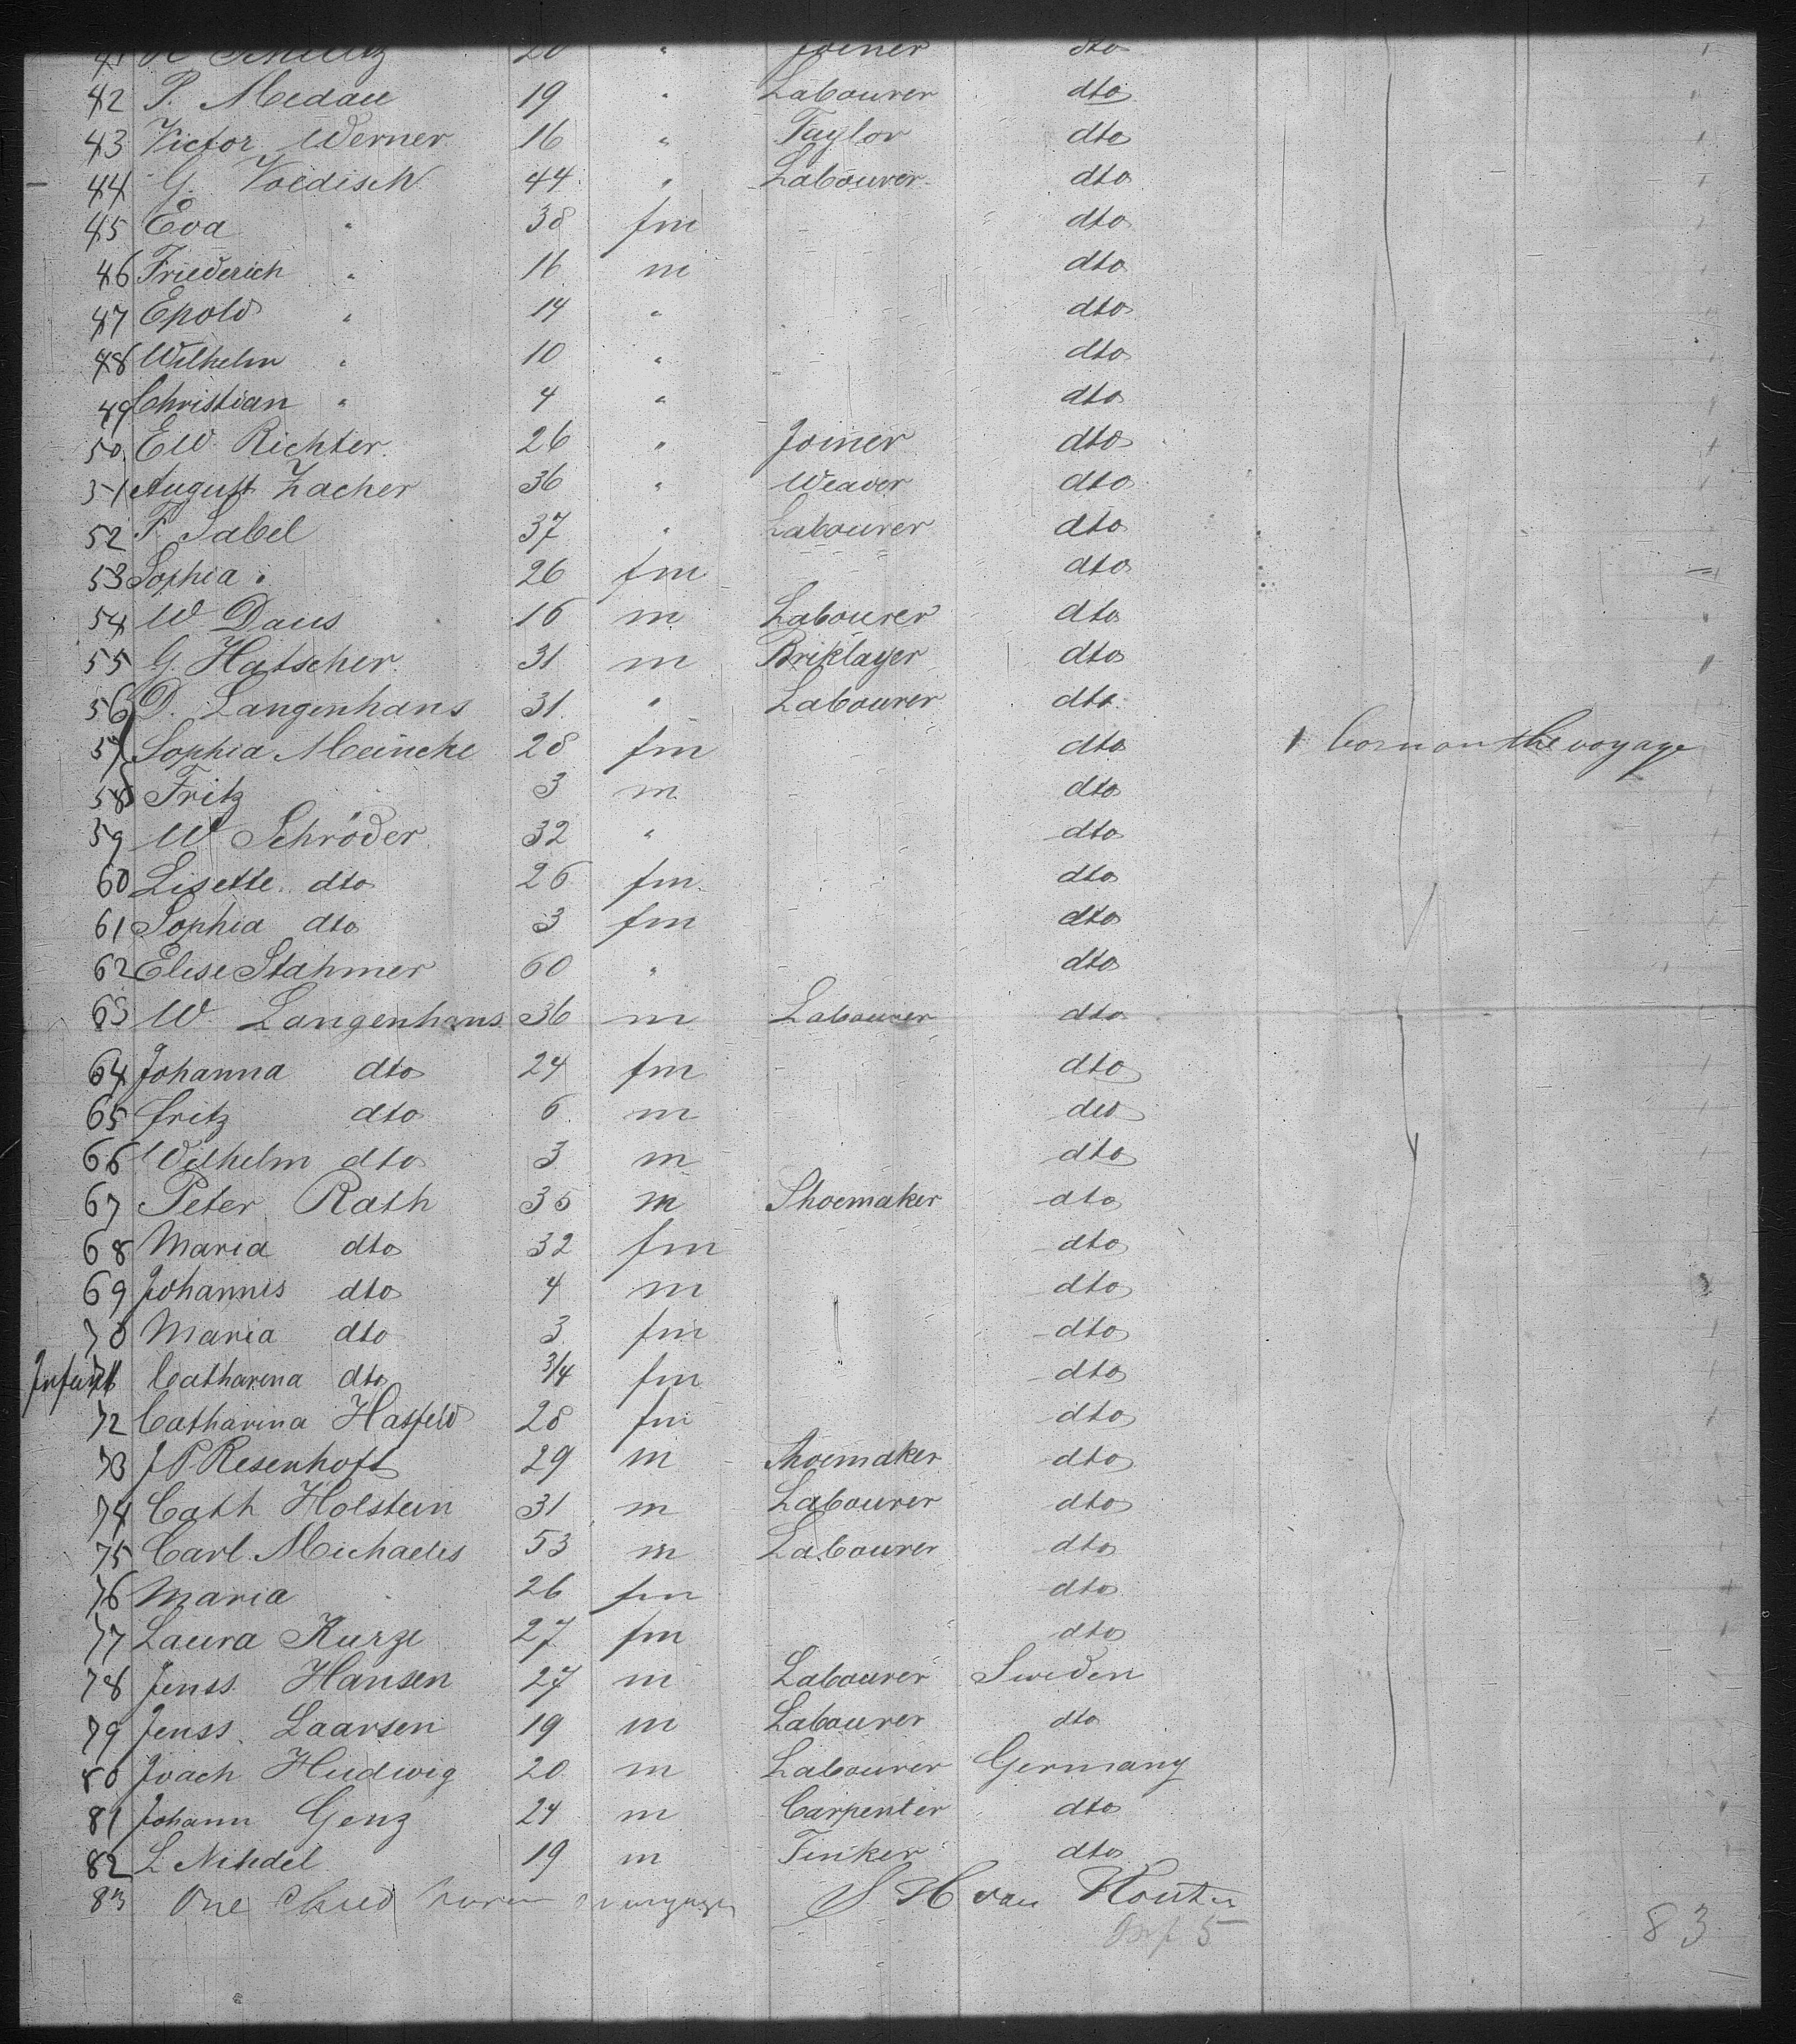 41 Joiner dto
42 P. Medau 19 " Labourer dto
43 Victor Werner 16 " Taylor dto
44 G. Voedisch 44 " Labourer dto
45 Eva " 38 fm dto
46 Friederich " 16 m dto
47 Epold " 14 " dto
48 Wilhelm " 10 " dto
49 Christian " 4 " dto
50 EW Richter 26 " Joiner dto
51 August Zacher 36 " Weaver dto
52 F. Sabel 37 " Labourer dto
53 Sophia " 26 fm dto
54 W Daus 16 m Labourer dto
55 G. Hatscher 31 m Briklayer dto
56 D. Langenhans 31 " Labourer dto
57 Sophia Meincke 28 fm dto 1 born on the voyage
58 Fritz 3 m dto
59 W Schröder 32 " dto
60 Lisette dto 26 fm dto
61 Sophia dto 3 fm dto
62 Elise Stahmer 60 " dto
63 W. Langenhans 36 m Labourer dto
64 Johanna dto 24 fm dto
65 Fritz dto 6 m dto
66 Wilhelm dto 3 m dto
67 Peter Rath 35 m Shoemaker dto
68 Maria dto 32 fm dto
69 Johannes dto 4 m dto
70 Maria dto 3 fm dto
Infant 71 Catharena dto 3/4 fm dto
72 Catharina Hasfeld 28 fm dto
73 J P Resenhoft 29 m Shoemaker dto
74 Cath Holstein 31 m Labourer dto
75 Carl Michaelis 53 m Labourer dto
76 Maria 26 fm dto
77 Laura Kurze 27 fm dto
78 Jenss Hansen 27 m Labourer Sweden
79 Jenss Laarsen 19 m Labourer dto
80 Joach Hudwig 20 m Labourer Germany
81 Johann Genz 24 m Carpenter dto
82 L Nihdel 19 m Tinker dto
83 One Child born voyage S H van Houten
Inf 5 83